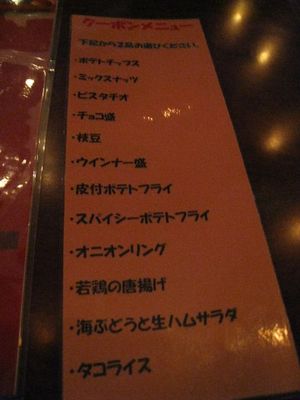 クーポンメニュー
下記から2品お選びください。
・ポテトチップス
・ミックスナッツ
・ピスタチオ
・チョコ盛
・枝豆
・ウインナー盛
・皮付ポテトフライ
・スパイシーポテトフライ
・オニオンリング
・若鶏の唐揚げ
・海ぶどうと生ハムサラダ
・タコライス